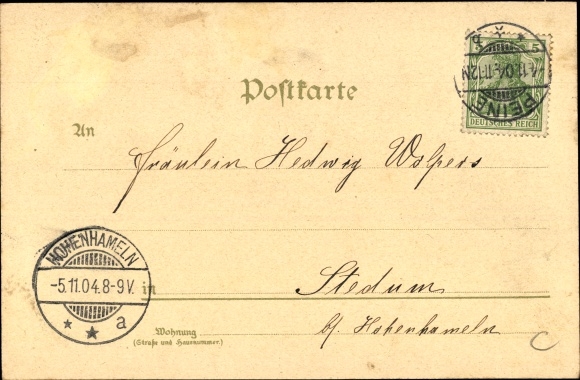 Postkarte
5
4.11.04.11-12V.
PEINE
DEUTSCHES REICH
An
Fräulein Hedwig Wolpers
HOHENHAMELN
-5.11.04.8-9V.
a
in
Stedum
Wohnung
(Straße und Hausnummer.)
b/ Hohenhameln